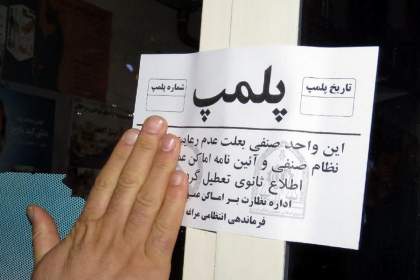 تاریخ پلمپ
پلمپ
شماره پلمپ
این واحد صنفی بعلت عدم
نظام صنفی و آئین نامه اماکن
اطلاع ثانوی تعطیل
اداره نظارت بر اماکن
فرماندهی انتظامی